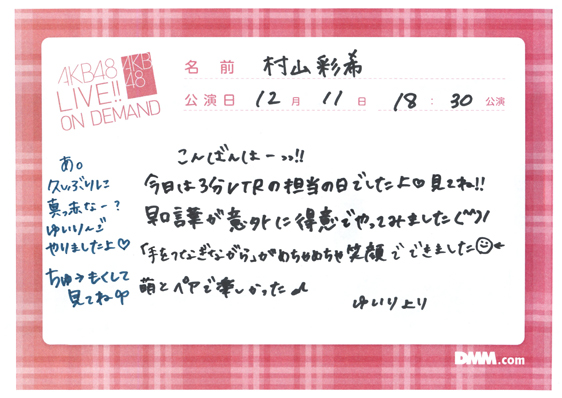 AKB48
LIVE!!
ON DEMAND
AKB
48
名 前 村山彩希
公演日 12 月 11 日 18 : 30 公演
こんばんはーっっ!!
今日は3分VTRの担当の日でしたよ♡見てね!!
早口言葉が意外に得意でやってみました(^^)/
「手をつなぎながら」がめちゃめちゃ笑顔でできました☺←
萌とペアで楽しかった♪
ゆいりより
あ。
久しぶりに
真っ赤なー?
ゆいりんご
やりましたよ♡
ちゅ→もくして
見てね
DMM.com